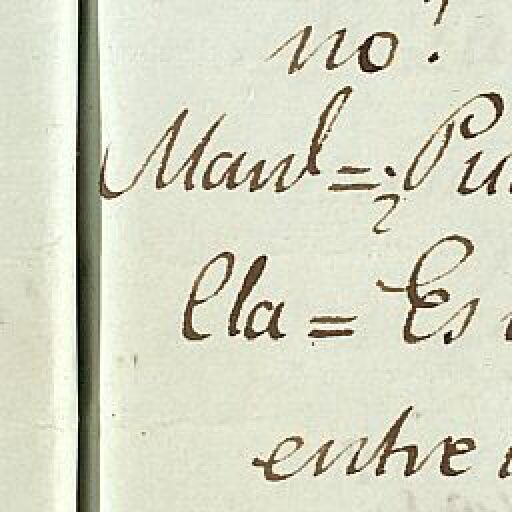 no?
Manl = ¿Pu
Cla = Es
entre